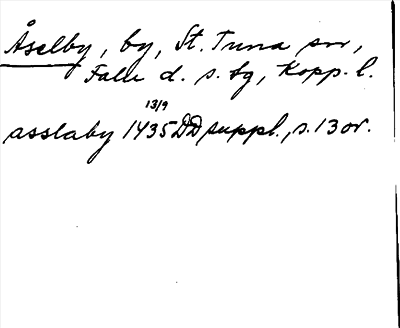 Åselby, by, St. Tuna sn,
Falu d. s. tg, Kopp. l.
13/9
asslaby 1435 DD suppl., s. 13 or.